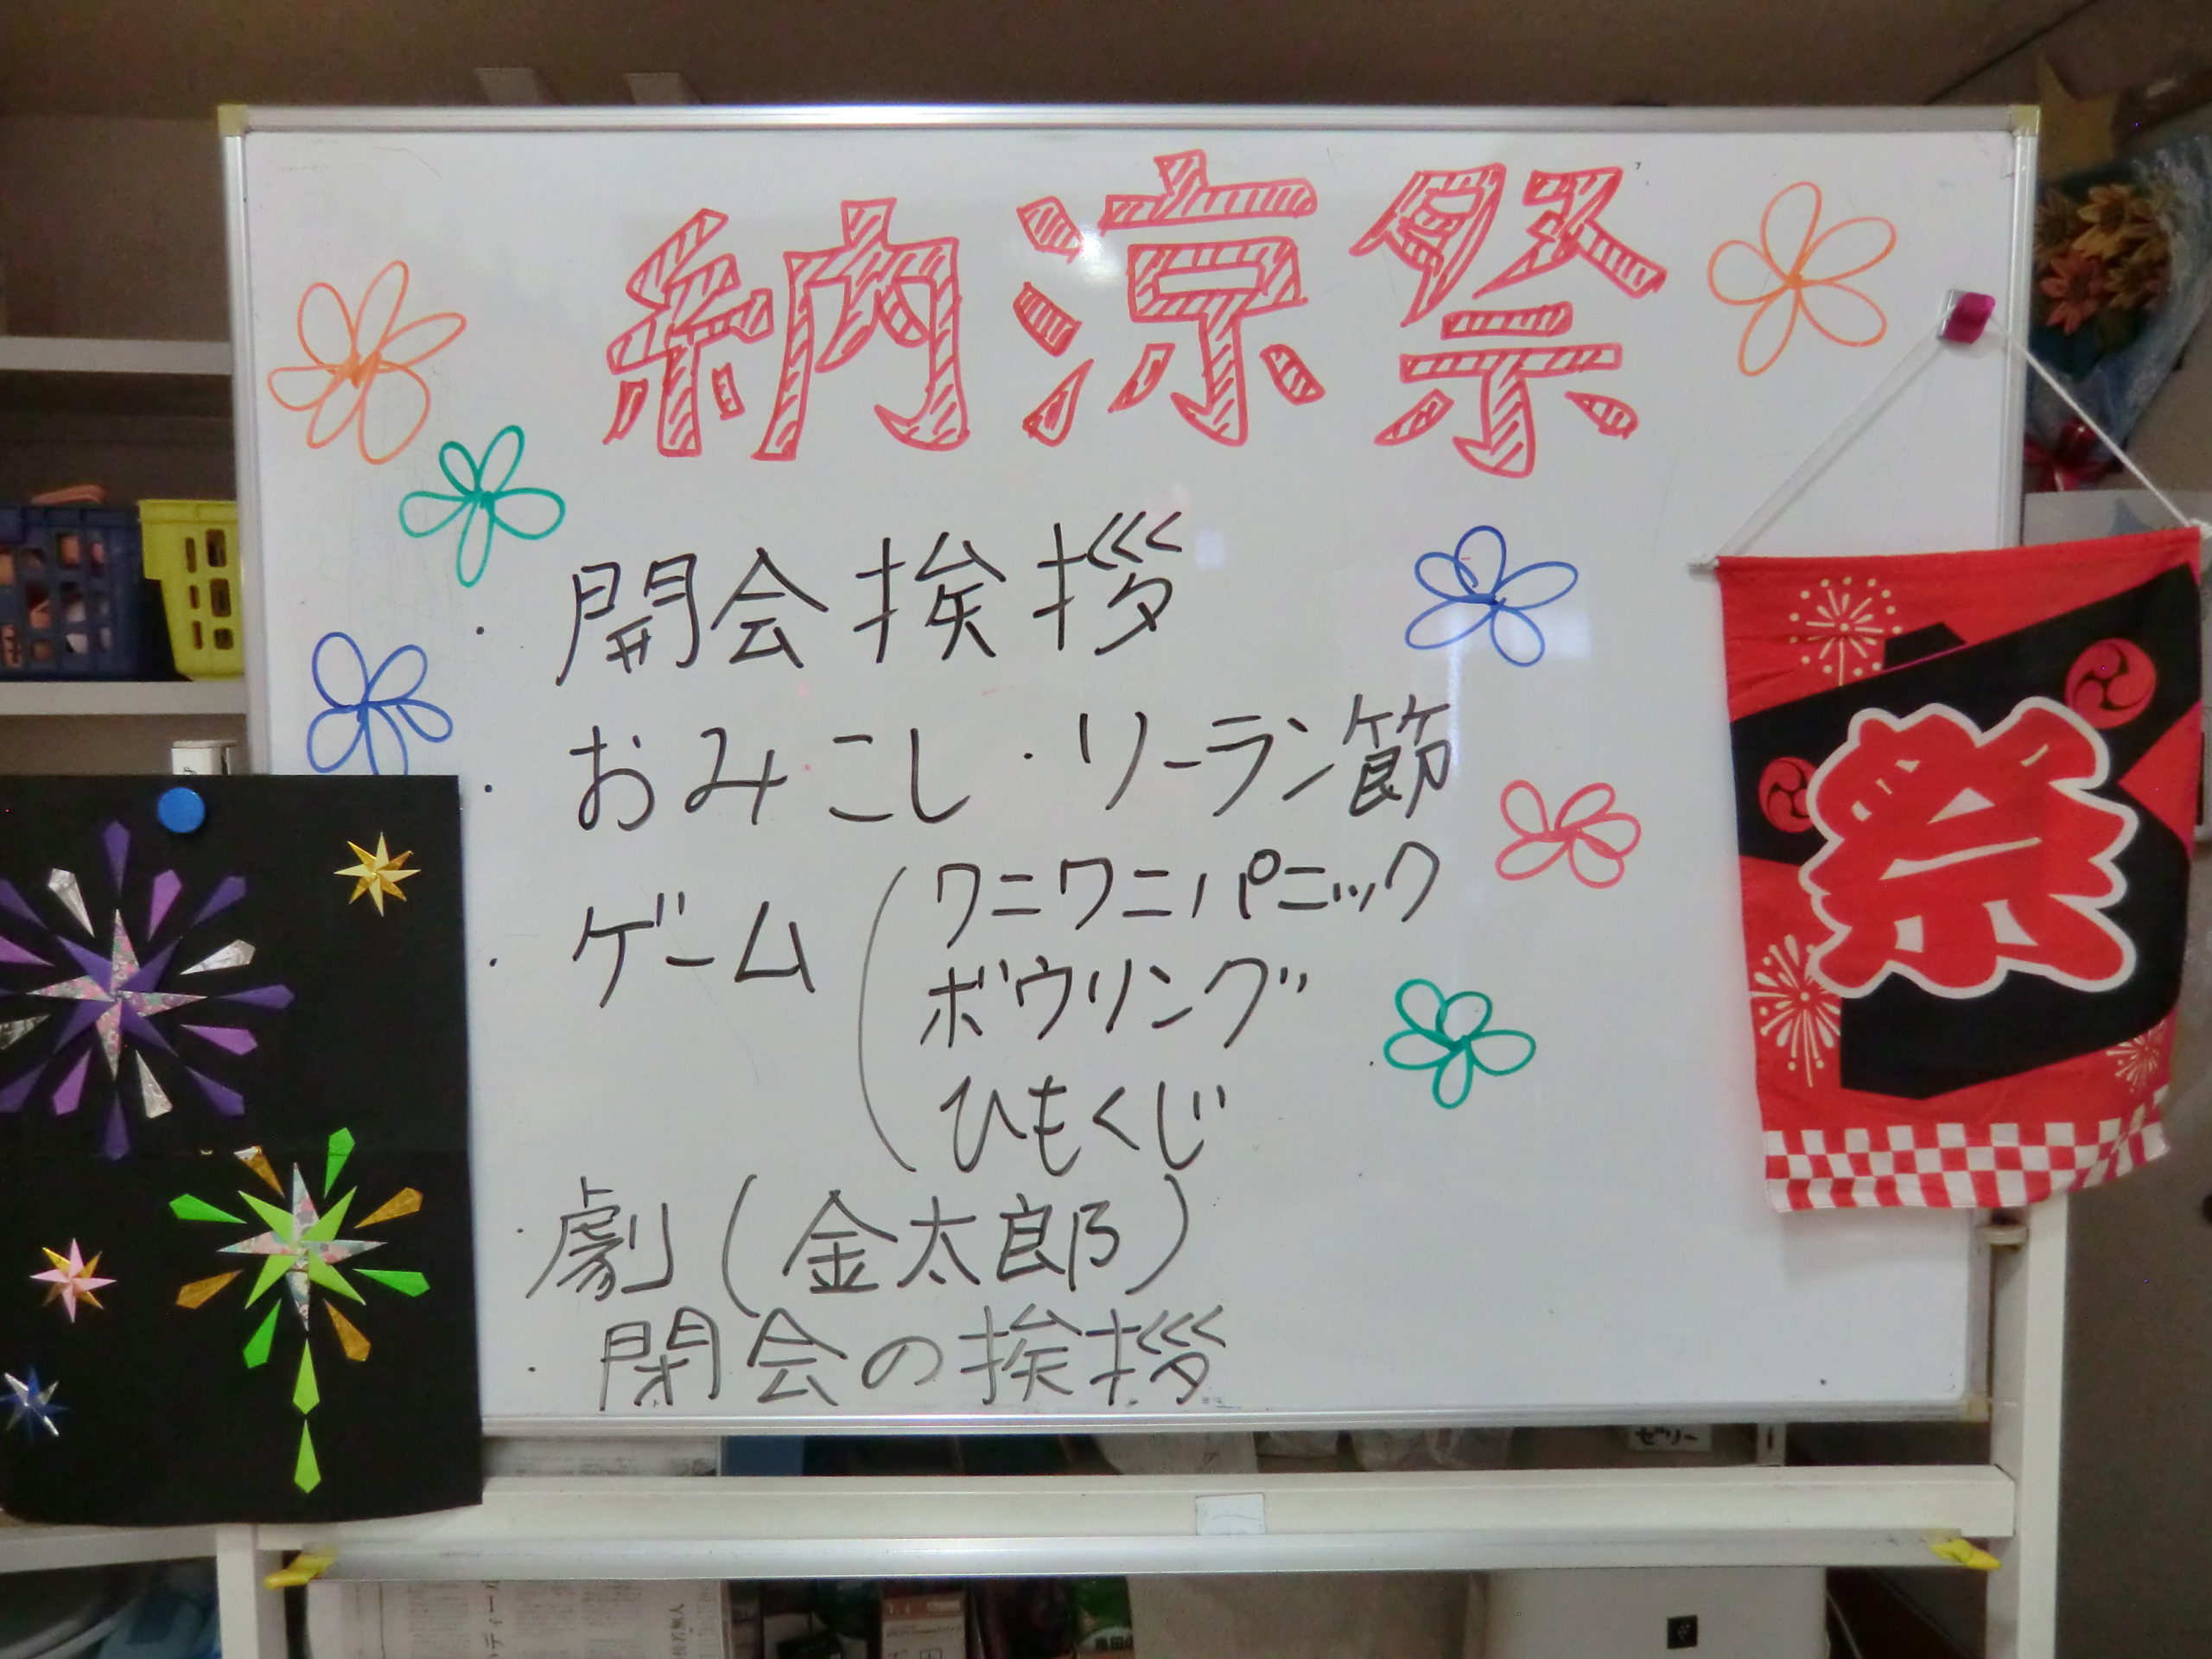 納涼祭
・開会挨拶
・おみこし・ソーラン節
・ゲーム(ワニワニパニック
ボウリング
ひもくじ
・劇(金太郎)
・閉会の挨拶
祭
ゼリー